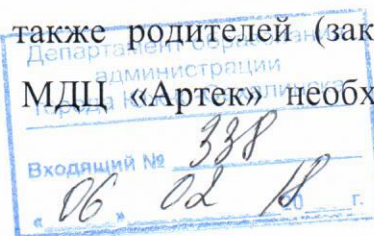 также родителей (зак
Департамент образования
администрации
МДЦ «Артек» необх
города
Входящий № 338
« 06 » 02 18 г.